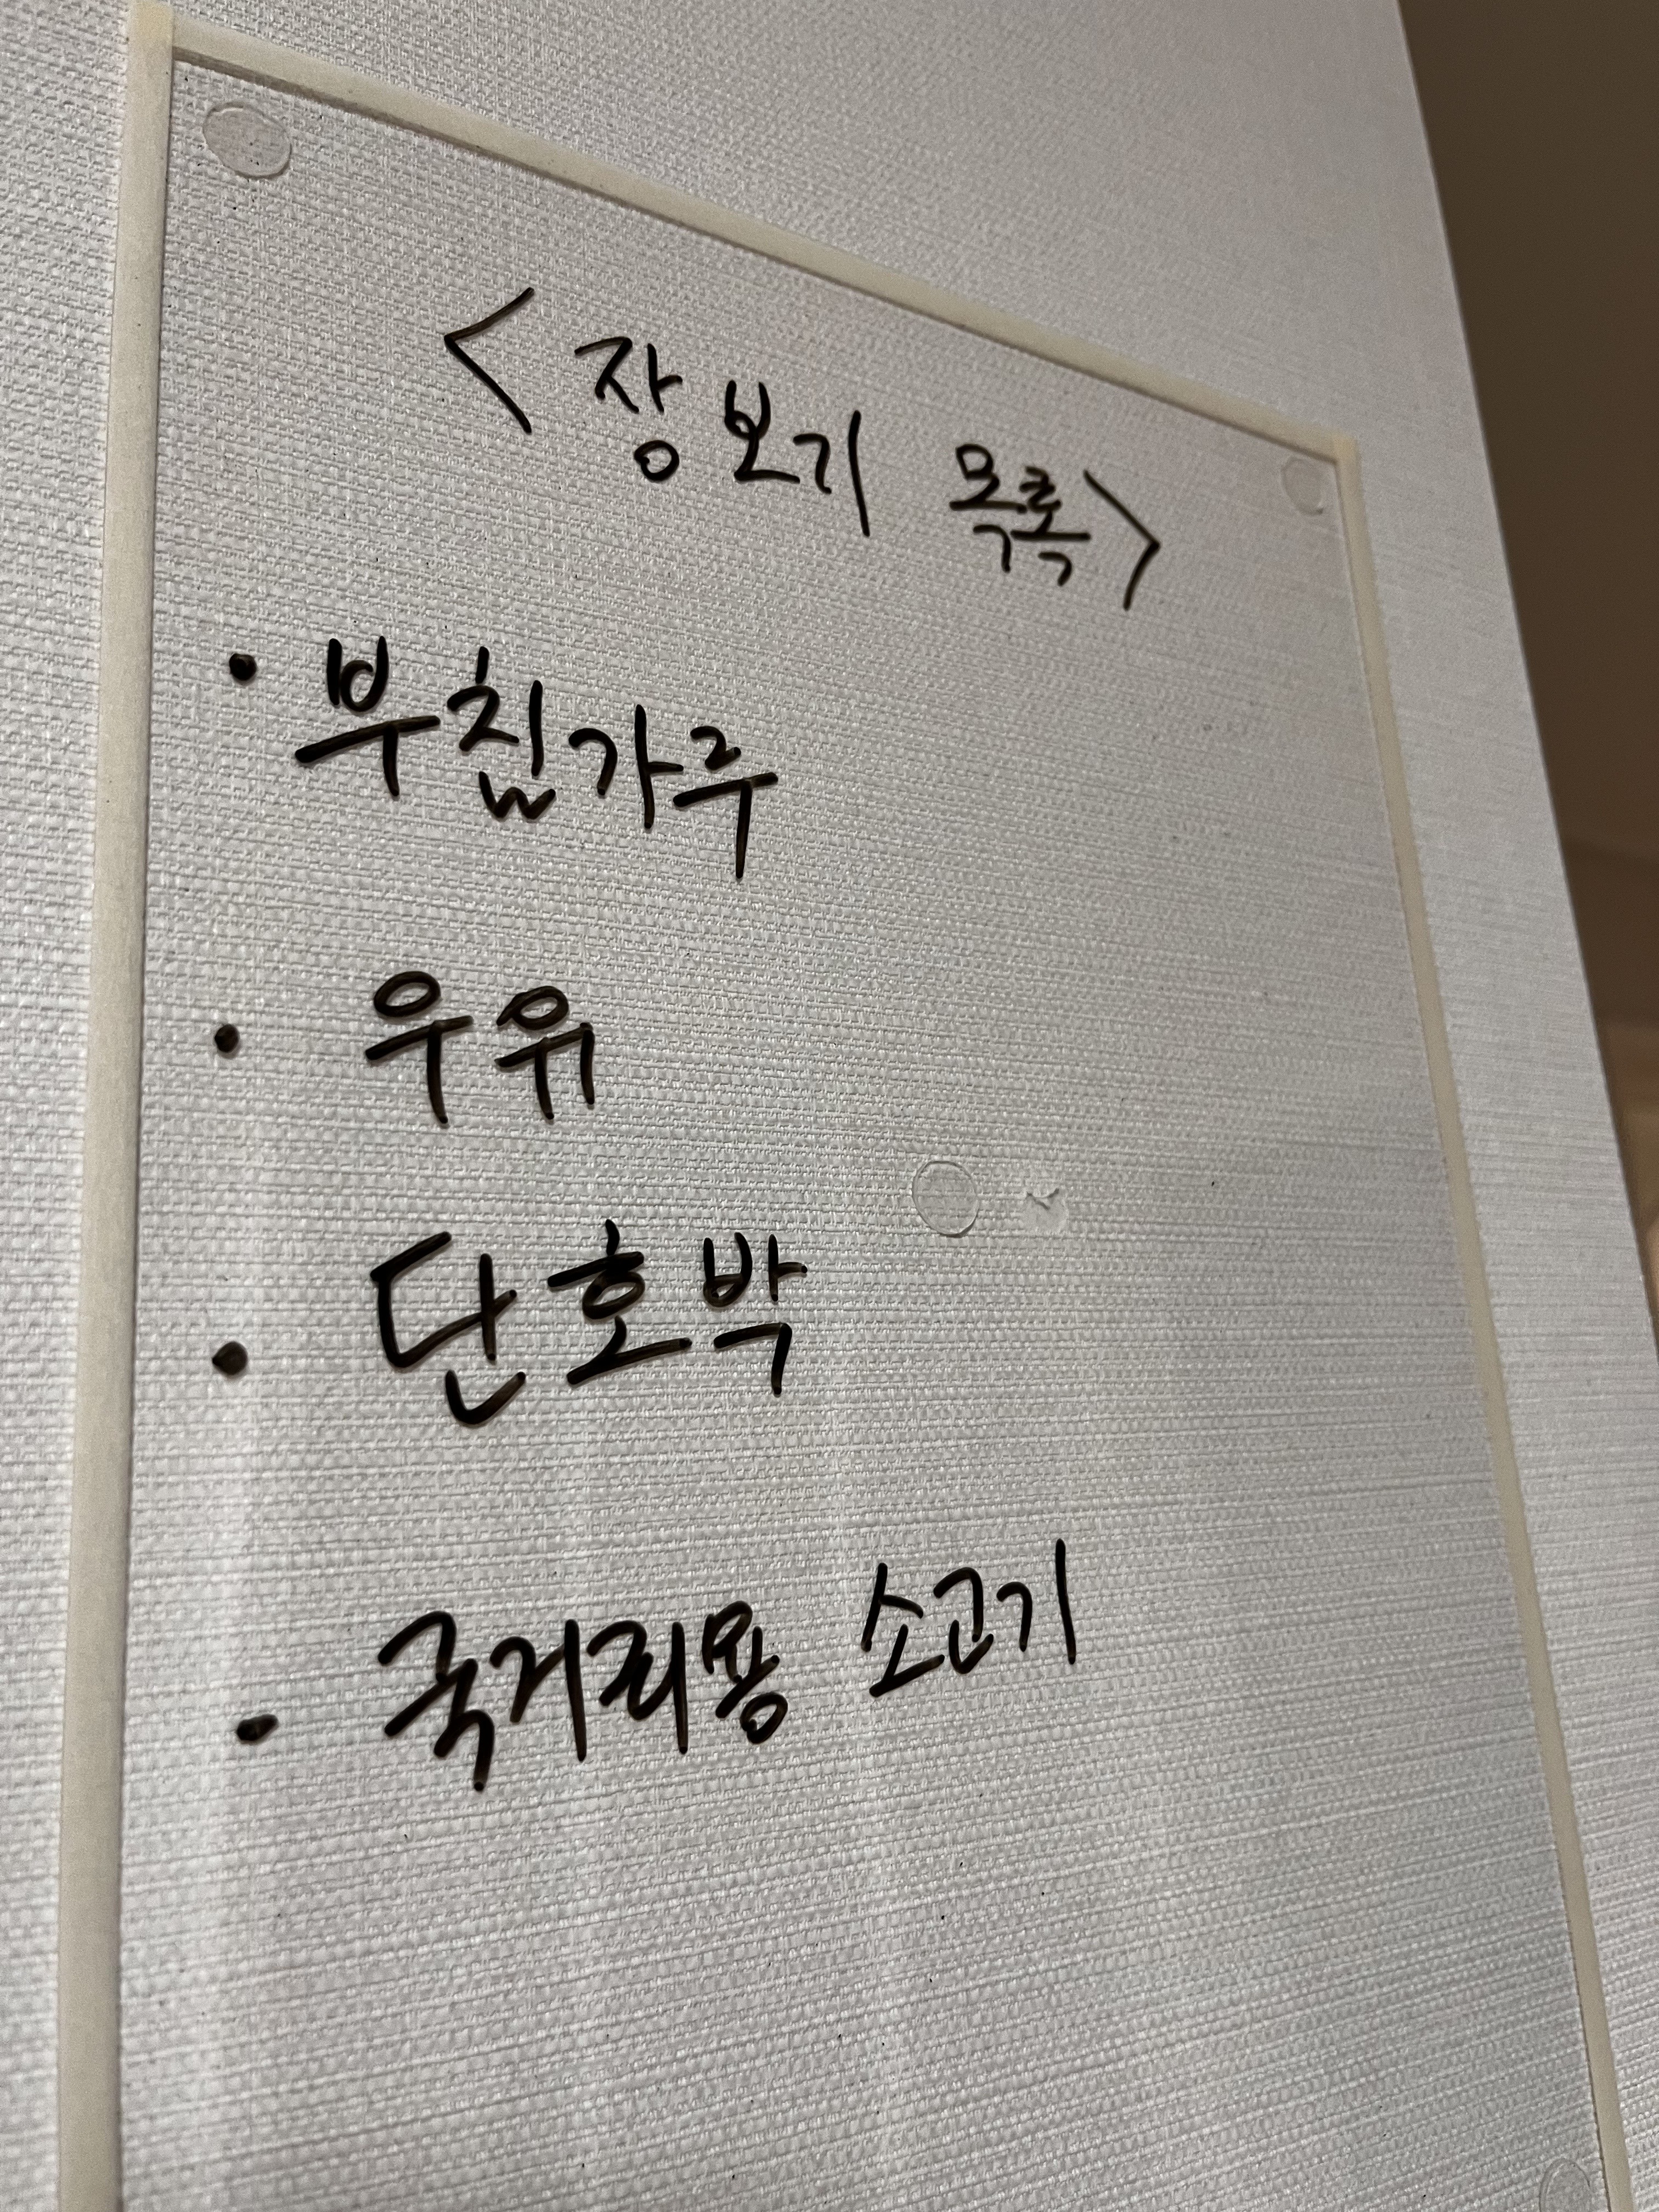 <장보기 목록>
· 부침가루
· 우유
· 단호박
· 국거리용 소고기